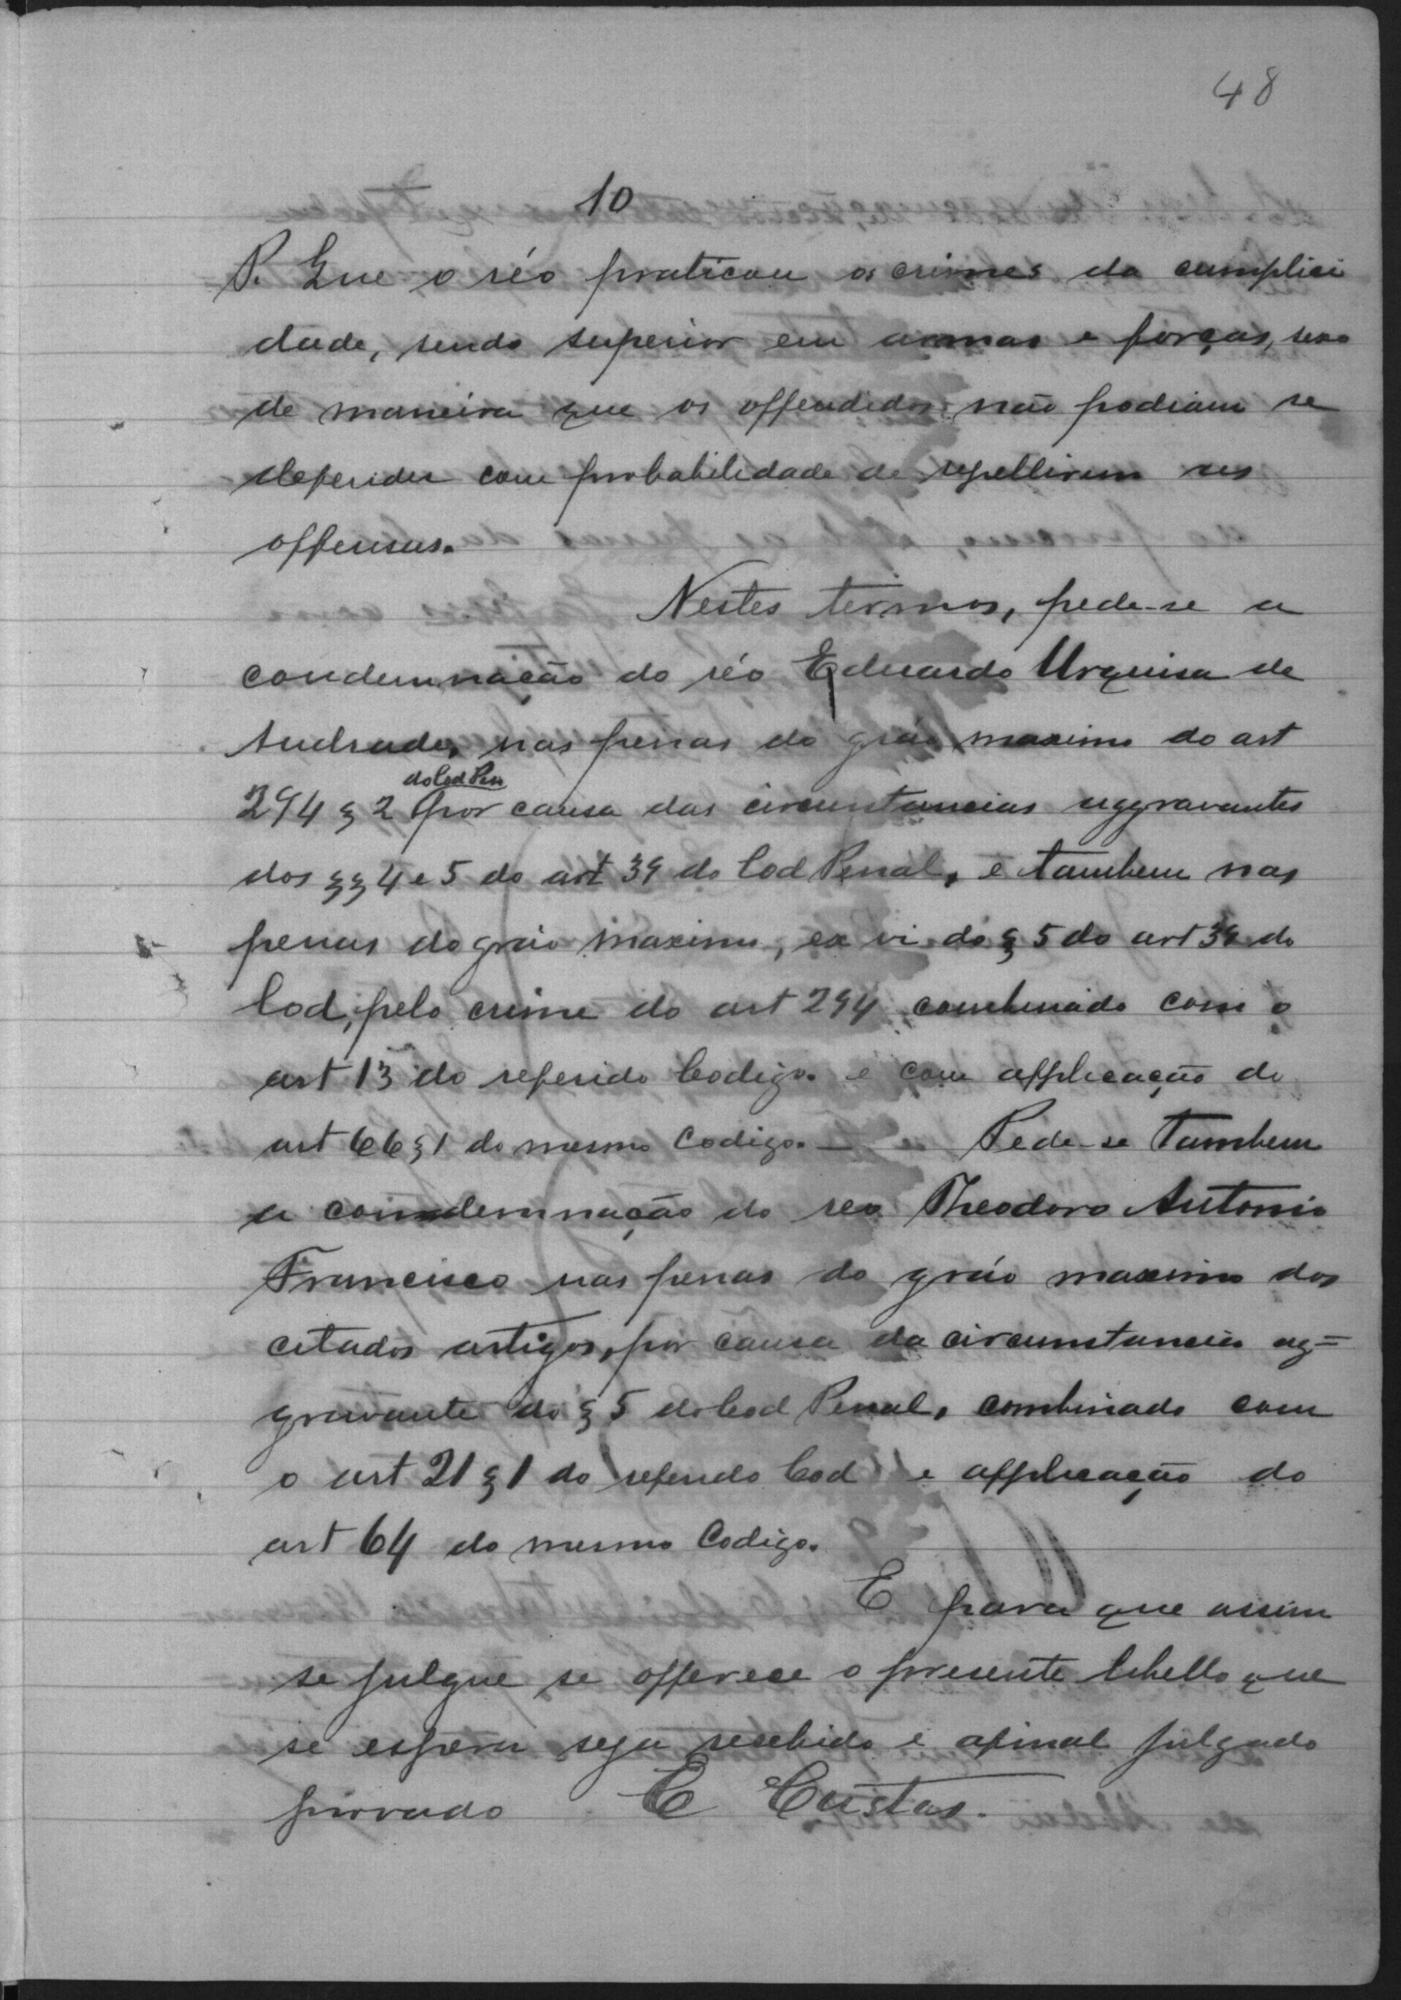 48
10
P. Que o réo praticou os crimes da cumplici
dade, sendo superior em armas e forças,
de maneira que os offendidos não podiam se
defender com probabilidade de repellirem as
offensas.
Nestes termos, pede-se a
condemnação do réo Eduardo Urquisa de
Andrade, nas penas do gráo maximo do art
do Cod Pen
294 § 2 por causa das circunstancias aggravantes
dos §§ 4 e 5 do art 39 do Cod Penal, e tambem nas
penas do gráo maximo, ex vi do § 5 do art 39 do
Cod, pelo crime do art 294 combinado com o
art 13 do referido Codigo. e com applicação do
art 66 § 1 do mesmo Codigo. — Pede-se tambem
a condemnação do reo Theodoro Antonio
Francisco nas penas do gráo maximo dos
citados artigos, por causa da circumstancia ag=
gravante do § 5 do Cod Penal, combinado com
o art 21 § 1 do referido Cod e applicação do
art 64 do mesmo Codigo.
E para que assim
se julgue se offerece o presente libello que
se espera seja recebido e afinal julgado
provado E Custas.